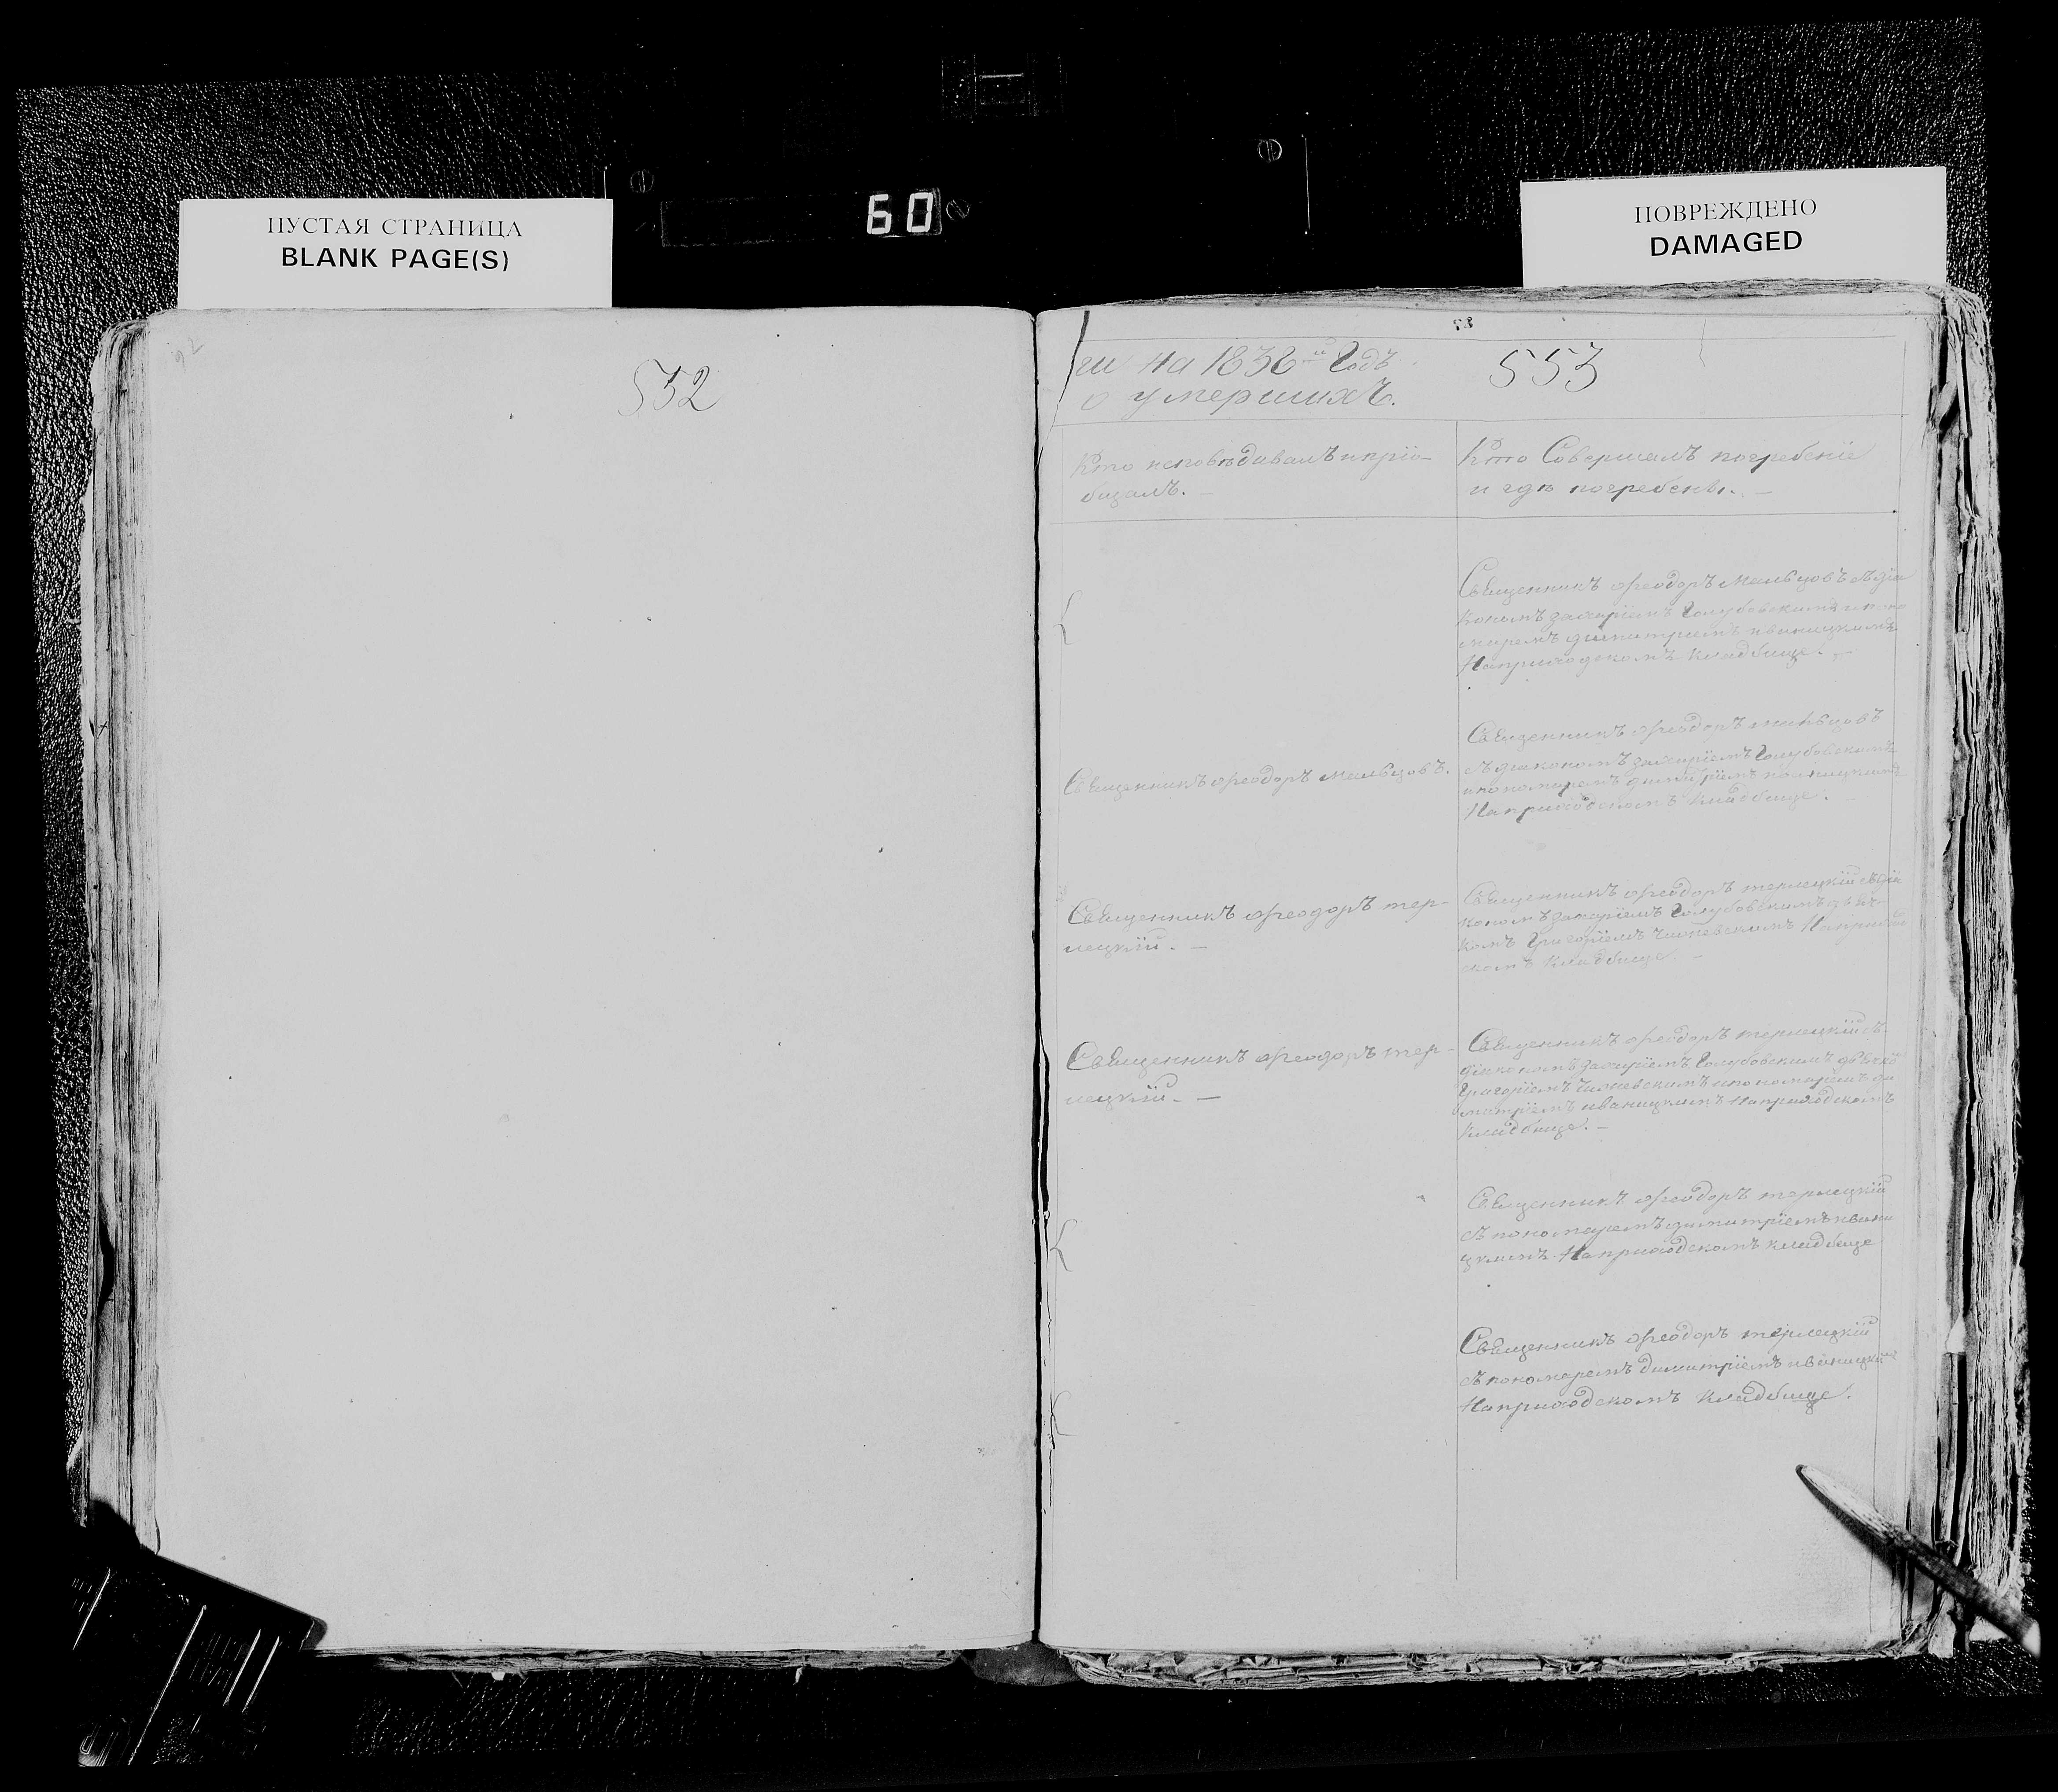 60
ПУСТАЯ СТРАНИЦА
BLANK PAGE(S)
ПОВРЕЖДЕНО
DAMAGED
92
552
ги на 1836й Годъ
553
о умершихъ.
Кто исповѣдывалъ и пріо-
бщалъ. —
Кто Совершалъ погребеніе
и гдѣ погребены. —
Священникъ Ѳеодоръ Мальцовъ съ діа
кономъ Захаріемъ Голубовскимъ и поно
маремъ Димитріемъ Иваницкимъ
На приходскомъ Кладбище. —
Священникъ Ѳеодоръ Мальцовъ.
Священникъ Ѳеодоръ Мальцовъ
съ діакономъ Захаріемъ Голубовскимъ
и пономаремъ Димитріемъ Иваницкимъ
На приходскомъ Кладбище.
Священникъ Ѳеодоръ Тер-
лецкій. —
Священникъ Ѳеодоръ Терлецкій съ діа
кономъ Захаріемъ Голубовскимъ дьяч
комъ Григоріемъ На приход
скомъ Кладбище —
Священникъ Ѳеодоръ Тер-
лецкій. —
Священникъ Ѳеодоръ Терлецкій съ
діакономъ Захаріемъ Голубовскимъ дьячко
Григоріемъ и пономаремъ Ди
митріемъ Иваницкимъ На приходскомъ
Кладбище. —
Священникъ Ѳеодоръ Терлецкій
съ пономаремъ Димитріемъ Ивани
цкимъ На приходскомъ кладбище
Священникъ Ѳеодоръ Терлецкій
съ пономаремъ Димитріемъ Иваницкимъ
На приходскомъ Кладбище.